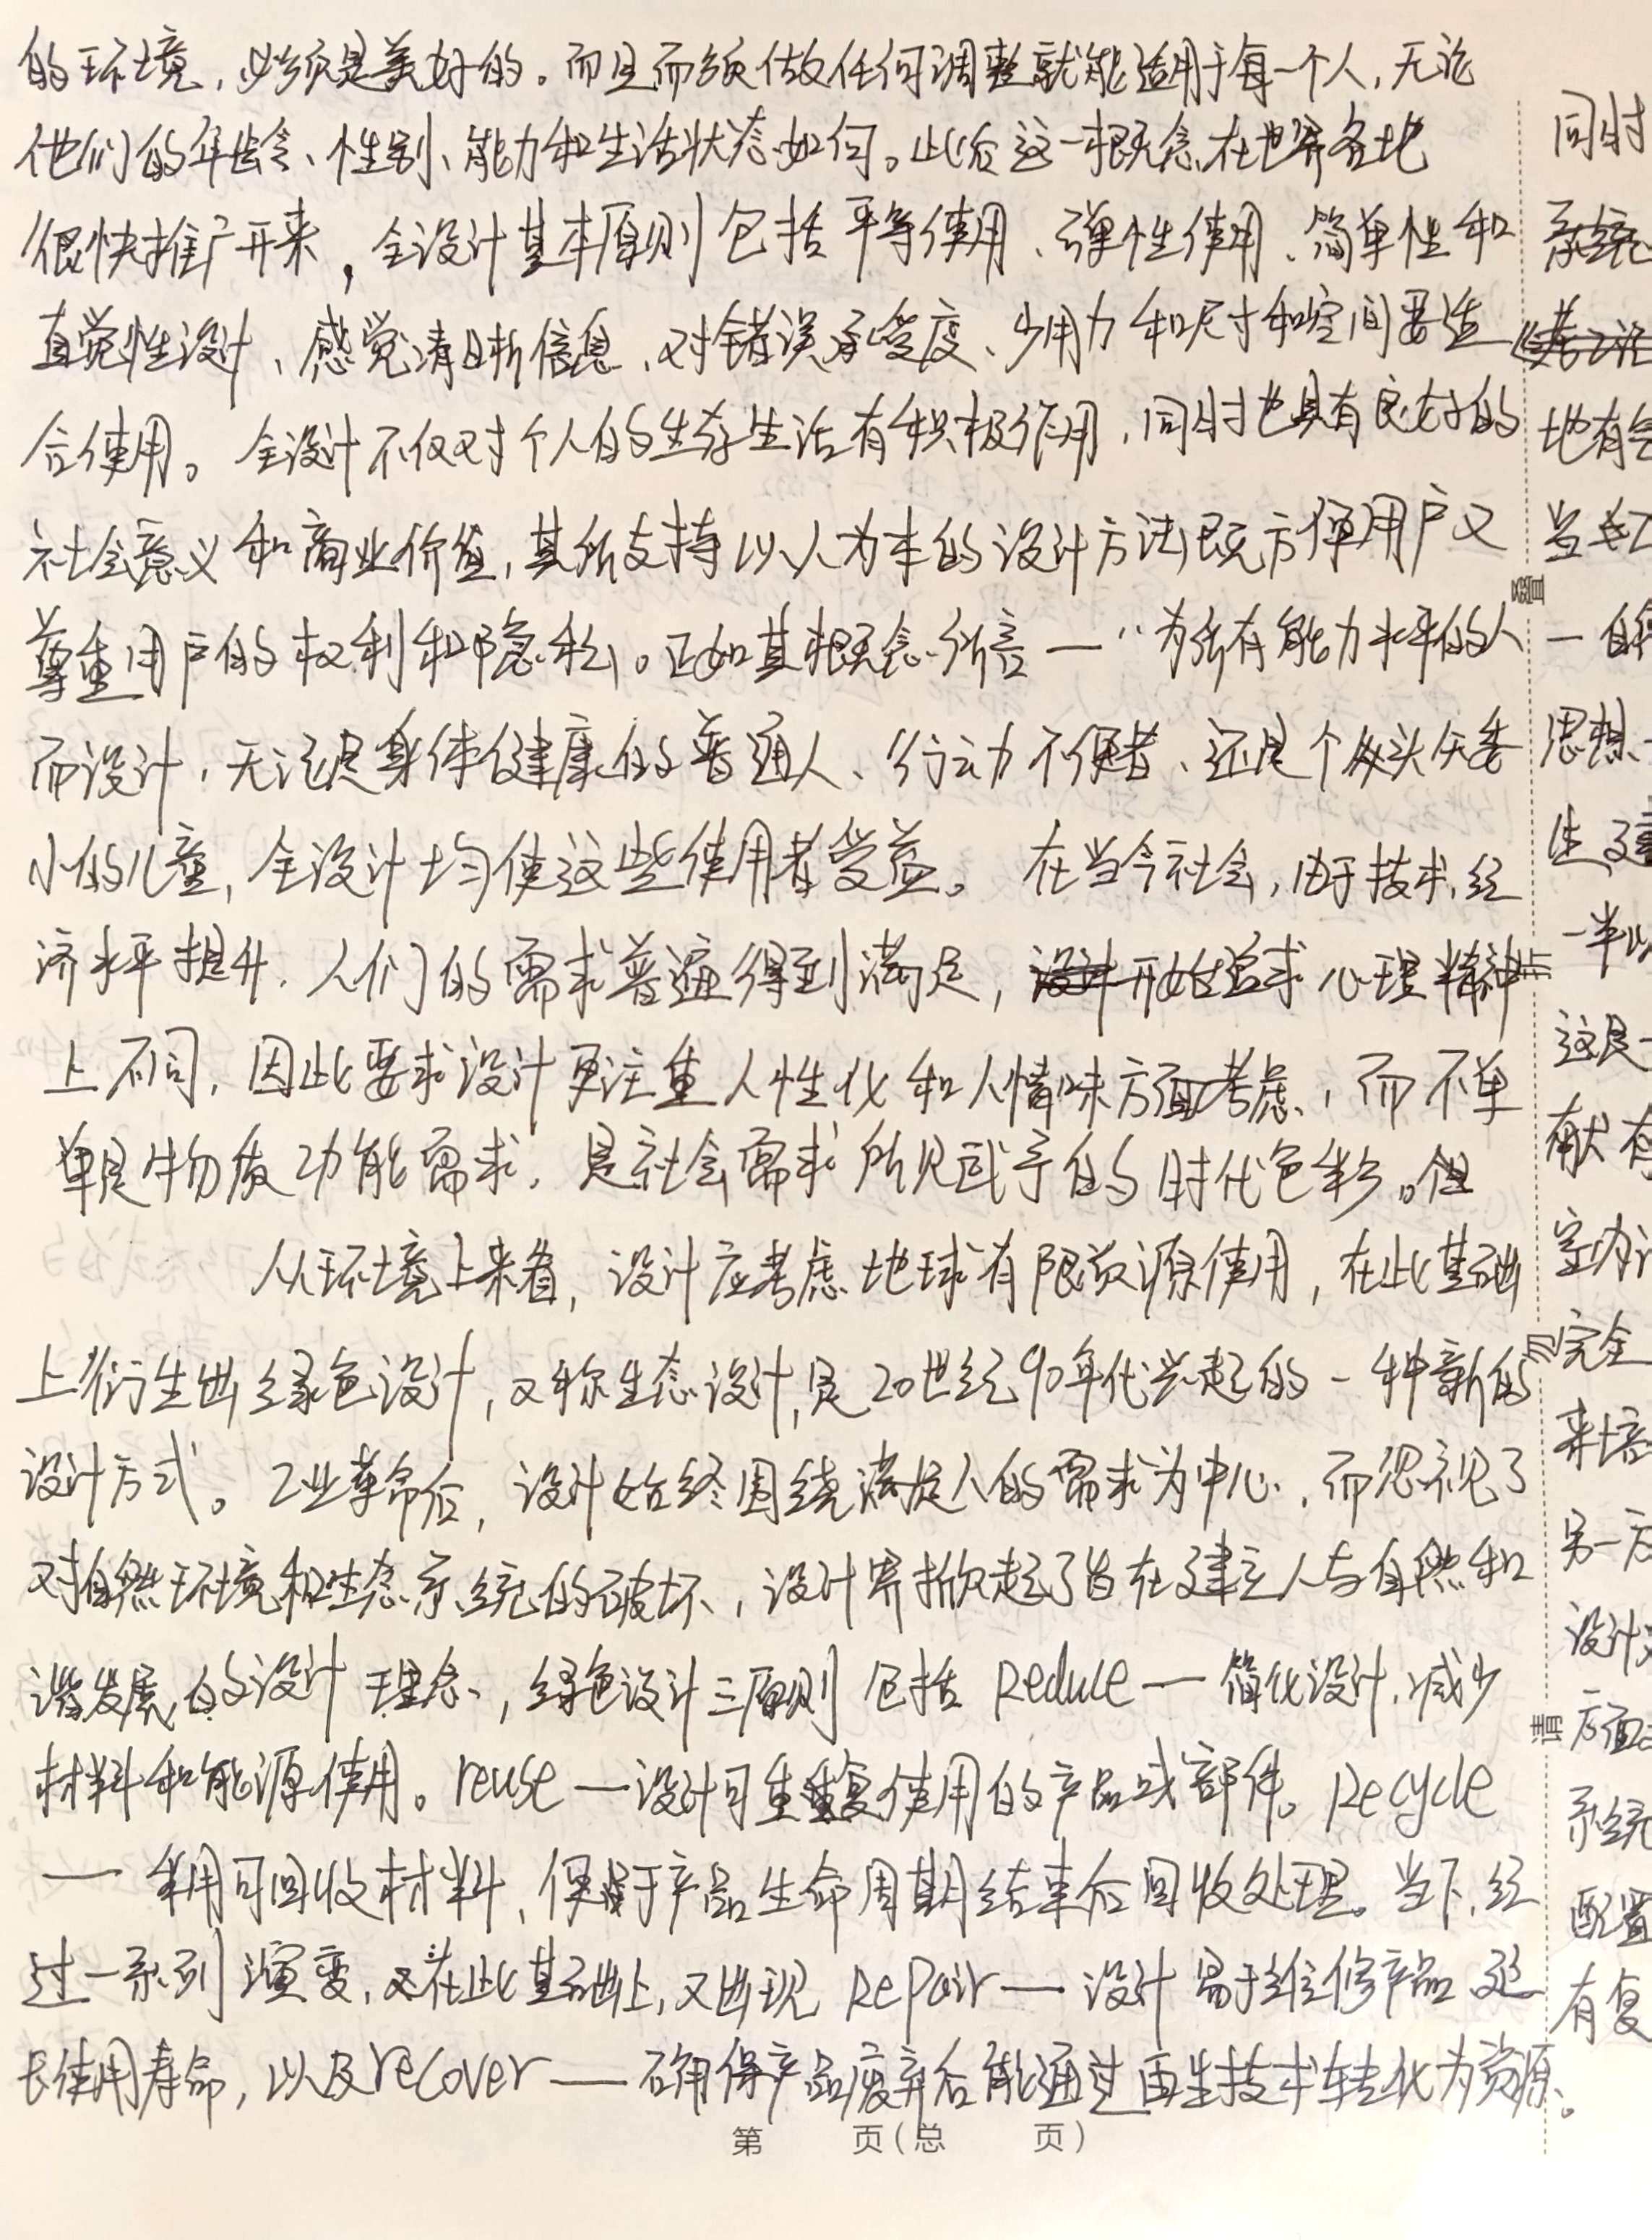 的环境，必须是美好的。而且而须做任何调整就能适用于每一个人，无论
他们的年龄、性别、能力和生活状态如何。此后这一概念在世界各地
很快推广开来，全设计基本原则包括平等使用、弹性使用、简单性和
直觉性设计、感觉清晰信息、对错误承受度、少用力和尺寸和空间要适
合使用。全设计不仅对个人的生存生活有积极作用，同时也具有良好的
社会意义和商业价值，其所支持以人为本的设计方法既方便用户又
尊重用户的权利和隐私。正如其概念所言一“为所有能力水平的人
而设计，无论是身体健康的普通人、行动不便者、还是个头矢委
小的儿童，全设计均使这些使用者受益。在当今社会，由于技术，经
济水平提升，人们的需求普遍得到满足，开始追求心理精神
上不同，因此要求设计更注重人性化和人情味方面考虑，而不单
单是物质功能需求，是社会需求所见武予的时代色彩。但
从环境上来看，设计应考虑地球有限资源使用，在此基础
上衍生出绿色设计，又称生态设计，是20世纪90年代兴起的一种新的
设计方式。工业革命后，设计始终围绕满足人的需求为中心，而忽视了
对自然环境和生态系统的破坏，设计界掀起了旨在建立人与自然和
谐发展的设计理念，绿色设计三原则包括Reduce一简化设计，减少
材料和能源使用。reuse一设计可重复使用的产品或部件。Recycle
一利用可回收材料，便于产品生命周期结束后回收处理。当下，经
过一系列演变，在此基础上，又出现Repair一设计易于维修产品延
长使用寿命，以及recover——确保产品废弃后能通过再生技术转化为资源。
第 页（总 页）
密
折
勿
请
同时
系统
地有
当
一自
思想
生建
一半以
这是一
献有
室内
完全
来培
另一方
设计
方面
系统
配置
有复